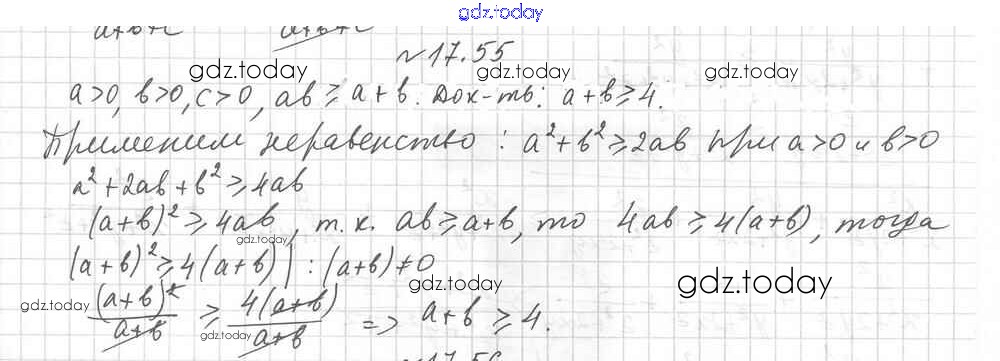 gdz.today
a+b+c a+b+c
№17.55
gdz.today gdz.today gdz.today
a>0, b>0, c>0, ab≥a+b. Док-ть: a+b≥4.
Применим неравенство: a²+b²≥2ab при a>0 и b>0
a²+2ab+b²≥4ab
(a+b)²≥4ab, т.к. ab≥a+b, то 4ab≥4(a+b), тогда
gdz.today
(a+b)²≥4(a+b) | :(a+b)≠0
gdz.today (a+b)²/a+b ≥ 4(a+b)/a+b => a+b≥4.
gdz.today gdz.today
№17.56